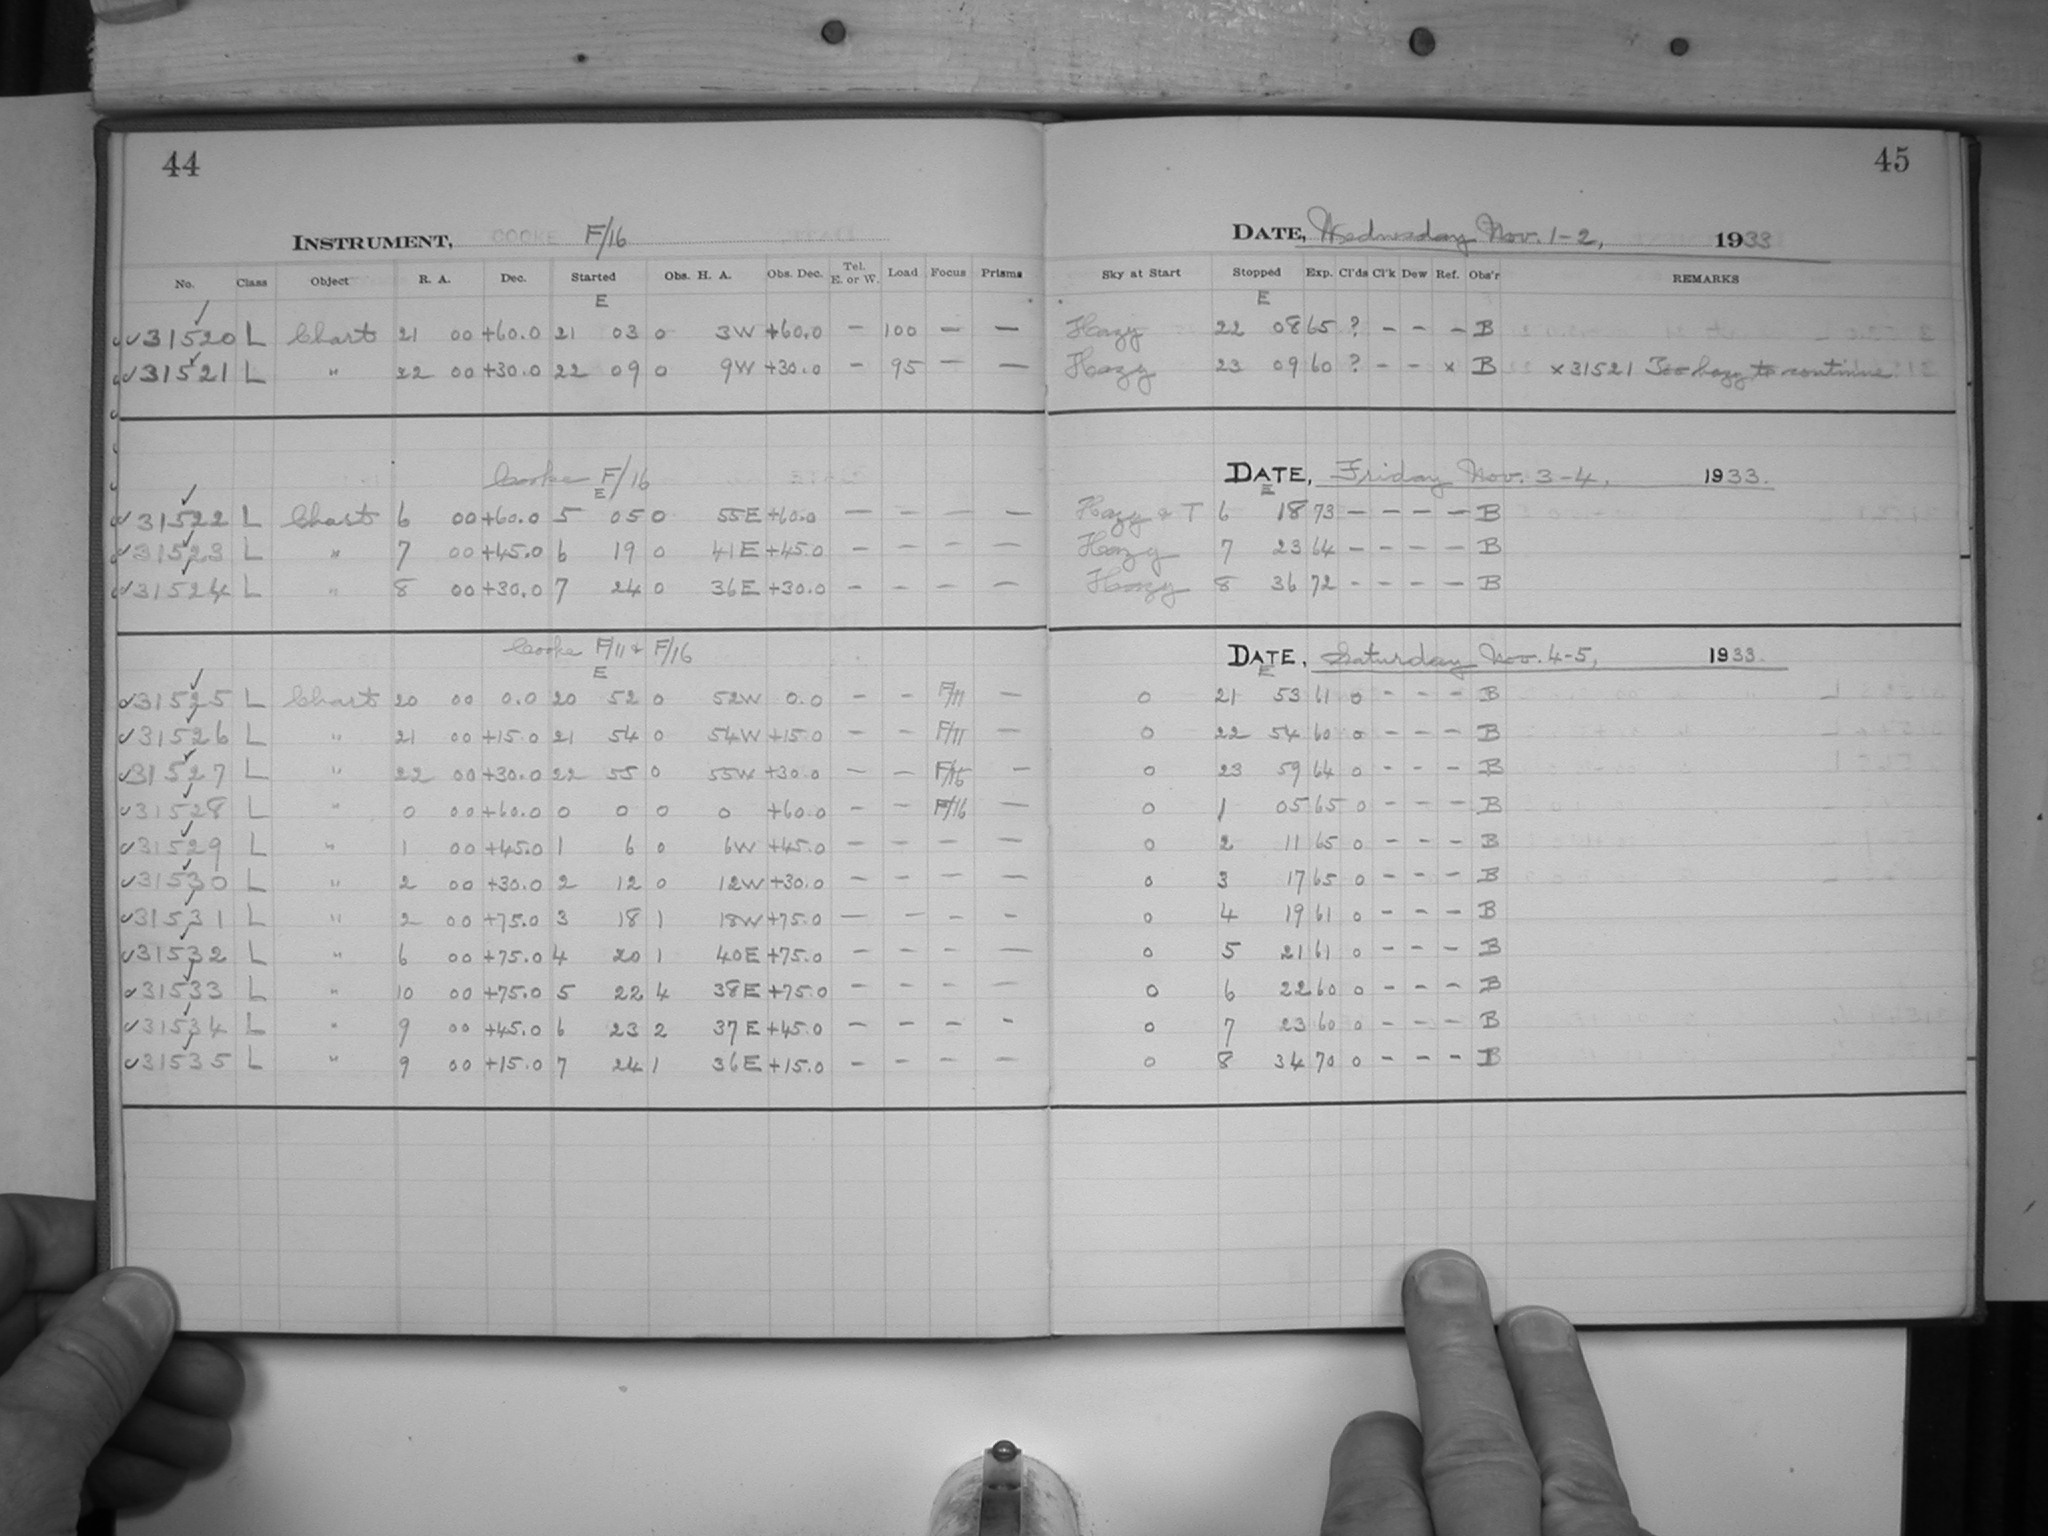 44
INSTRUMENT, COOKE F/16
No. Class Object R. A. Dec. Started Obs. H. A. Obs. Dec. Tel. E. or W. Load Focus Prisms
E
31520 L Chart 21 00 +60.0 21 03 0 3W +60.0 - 100 - -
31521 L " 22 00 +30.0 22 09 0 9W +30.0 - 95 - -
Cooke F/16
E
31522 L Chart 6 00 +60.0 5 05 0 55E +60.0 - - - -
31523 L " 7 00 +45.0 6 19 0 41E +45.0 - - - -
31524 L " 8 00 +30.0 7 24 0 36E +30.0 - - - -
Cooke F/11 & F/16
E
31525 L Chart 20 00 0.0 20 52 0 52W 0.0 - - F/11 -
31526 L " 21 00 +15.0 21 54 0 54W +15.0 - - F/11 -
31527 L " 22 00 +30.0 22 55 0 55W +30.0 - - F/16 -
31528 L " 0 00 +60.0 0 0 0 0 +60.0 - - F/16 -
31529 L " 1 00 +45.0 1 6 0 6W +45.0 - - - -
31530 L " 2 00 +30.0 2 12 0 12W +30.0 - - - -
31531 L " 2 00 +75.0 3 18 1 18W +75.0 - - - -
31532 L " 6 00 +75.0 4 20 1 40E +75.0 - - - -
31533 L " 10 00 +75.0 5 22 4 38E +75.0 - - - -
31534 L " 9 00 +45.0 6 23 2 37E +45.0 - - - -
31535 L " 9 00 +15.0 7 24 1 36E +15.0 - - - -
45
DATE, Wednesday Nov. 1-2, 1933
Sky at Start Stopped Exp. Cl'ds Cl'k Dew Ref. Obs'r REMARKS
E
Hazy 22 08 65 ? - - - B
Hazy 23 09 60 ? - - x B x31521 Too hazy to continue
DATE, Friday Nov. 3-4, 1933.
E
Hazy & T 6 18 73 - - - - B
Hazy 7 23 64 - - - - B
Hazy 8 36 72 - - - - B
DATE, Saturday Nov. 4-5, 1933.
E
0 21 53 61 0 - - - B
0 22 54 60 0 - - - B
0 23 59 64 0 - - - B
0 1 05 65 0 - - - B
0 2 11 65 0 - - - B
0 3 17 65 0 - - - B
0 4 19 61 0 - - - B
0 5 21 61 0 - - - B
0 6 22 60 0 - - - B
0 7 23 60 0 - - - B
0 8 34 70 0 - - - B